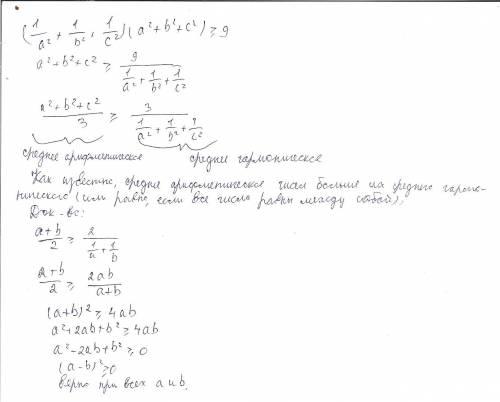 (1/a² + 1/b² + 1/c²)(a²+b²+c²) ≥ 9
a²+b²+c² ≥ 9/(1/a² + 1/b² + 1/c²)
(a²+b²+c²)/3 ≥ 3/(1/a² + 1/b² + 1/c²)
среднее арифметическое среднее гармоническое
Как известно, среднее арифметическое чисел больше их среднего гармо-
нического (или равно, если все числа равны между собой).
Док-во:
(a+b)/2 ≥ 2/(1/a + 1/b)
(a+b)/2 ≥ 2ab/(a+b)
(a+b)² ≥ 4ab
a²+2ab+b² ≥ 4ab
a²-2ab+b² ≥ 0
(a-b)² ≥ 0
верно при всех a и b.